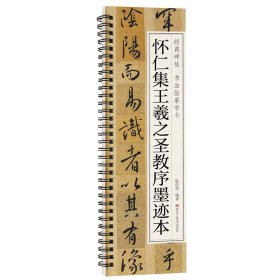 经典碑帖 书法临摹字卡
怀仁集王羲之圣教序墨迹本
编著
乎
陰陽而易識者以其有像